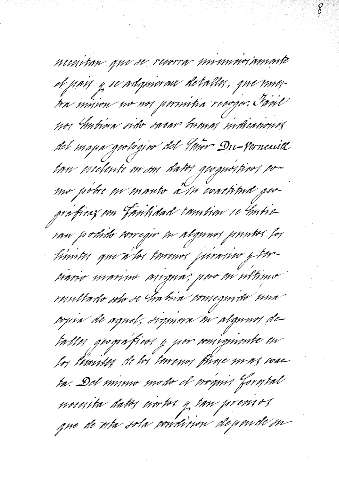 8
necesitan que se recorra minuciosamente
el pais y se adquieran detalles, que nues-
tra mision no nos permitia recojer. Facil
nos hubiera sido sacar buenas indicaciones
del mapa geologico del Señor De-Verneuill
tan escelente en sus datos geognosticos co-
mo pobre en cuanto á la exactitud geo-
grafica; con facilidad tambien se hubie-
ran podido corregir en algunos puntos los
limites que á los terrenos jurasico y ter-
ciario marino asigna; pero en ultimo
resultado solo se habria conseguido una
copia de aquel, siquiera en algunos de-
talles geograficos y por consiguiente en
los limites de los terrenos fuese mas exac-
ta. Del mismo modo el croquis forestal
necesita datos ciertos y tan precisos
que de esta sola condicion depende su